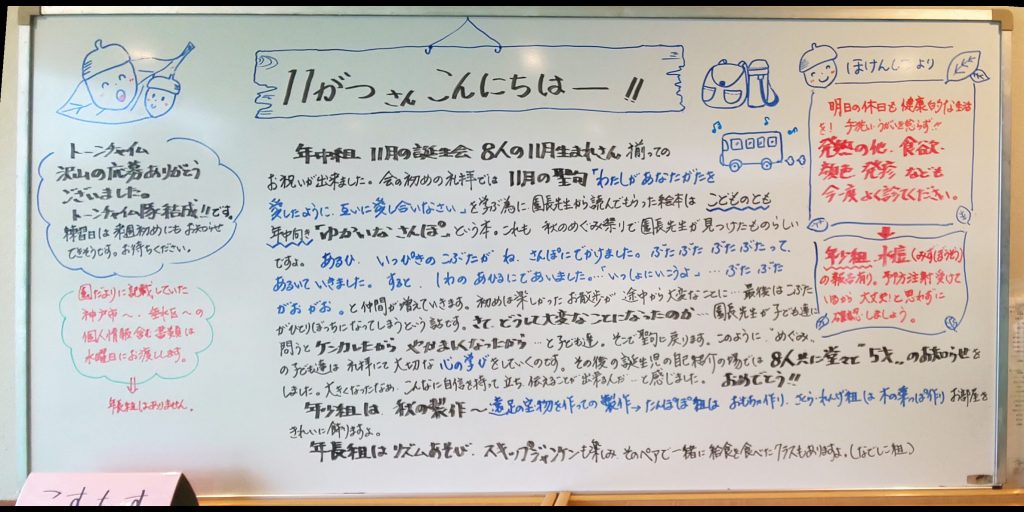 11がつ さん こんにちはー!!
トーンチャイム
沢山の応募ありがとう
ございました。
トーンチャイム隊結成!!です。
練習日は来週初めにもお知らせ
できそうです。お待ちください。
園だよりに記載していた
神戸市へ、垂水区への
個人情報含む書類は
水曜日にお渡しします。
年長組はありません。
年中組 11月の誕生会 8人の11月生まれさん 揃っての
お祝いが出来ました。会の初めの礼拝では 11月の聖句「わたしがあなたがたを
愛したように、互いに愛し合いなさい」を学ぶ為に、園長先生から読んでもらった絵本は こどものとも
年中向き「ゆかいなさんぽ」という本。これも 秋のめぐみ祭りで園長先生が見つけたものらしい
ですよ。 あるひ、いっぴきのこぶたが ね、さんぽにでかけました…ぶた ぶた ぶた ぶたって、
あるいていきました。すると、1わの あひるにであいました…「いっしょにいこうよ」…ぶた ぶた
がお がお。と仲間が増えていきます。初めは楽しかったお散歩が 途中から大変なことに…最後はこぶた
がひとりぼっちになってしまうという話です。さて、どうして大変なことになったのか…園長先生が子ども達に
問うと ケンカしたから やかましくなったから…と子ども達。そこで聖句に戻ります。このように"めぐみ"
の子ども達は 礼拝にて 大切な 心の学びをしていくのです。その後の誕生児の自己紹介の場では 8人共に堂々と"5才"のお知らせを
しました。大きくなったなぁ、こんなに自信を持って立ち、伝えることが 出来るんだ…と感じました。 おめでとう!!
年少組は、秋の製作〜遠足の宝物を作っての製作→たんぽぽ組は おもちゃ作り、さくら・れんげ組は 木の葉っぱ作り お部屋を
きれいに飾りますよ。
年長組は リズムあそび、スキップジャンケンも楽しみ、そのペアで一緒に給食を食べたクラスもありますよ。(なでしこ組)
ほけんしつより
明日の休日も 健康的な生活
を! 手洗いうがいを怠らず!!
発熱の他、食欲、
顔色、発疹なども
今度よく診てください。
年少組、水痘(みずぼうそう)
の報告有り。予防注射受けて
いるから大丈夫と思わずに
確認しましょう。
こすもす